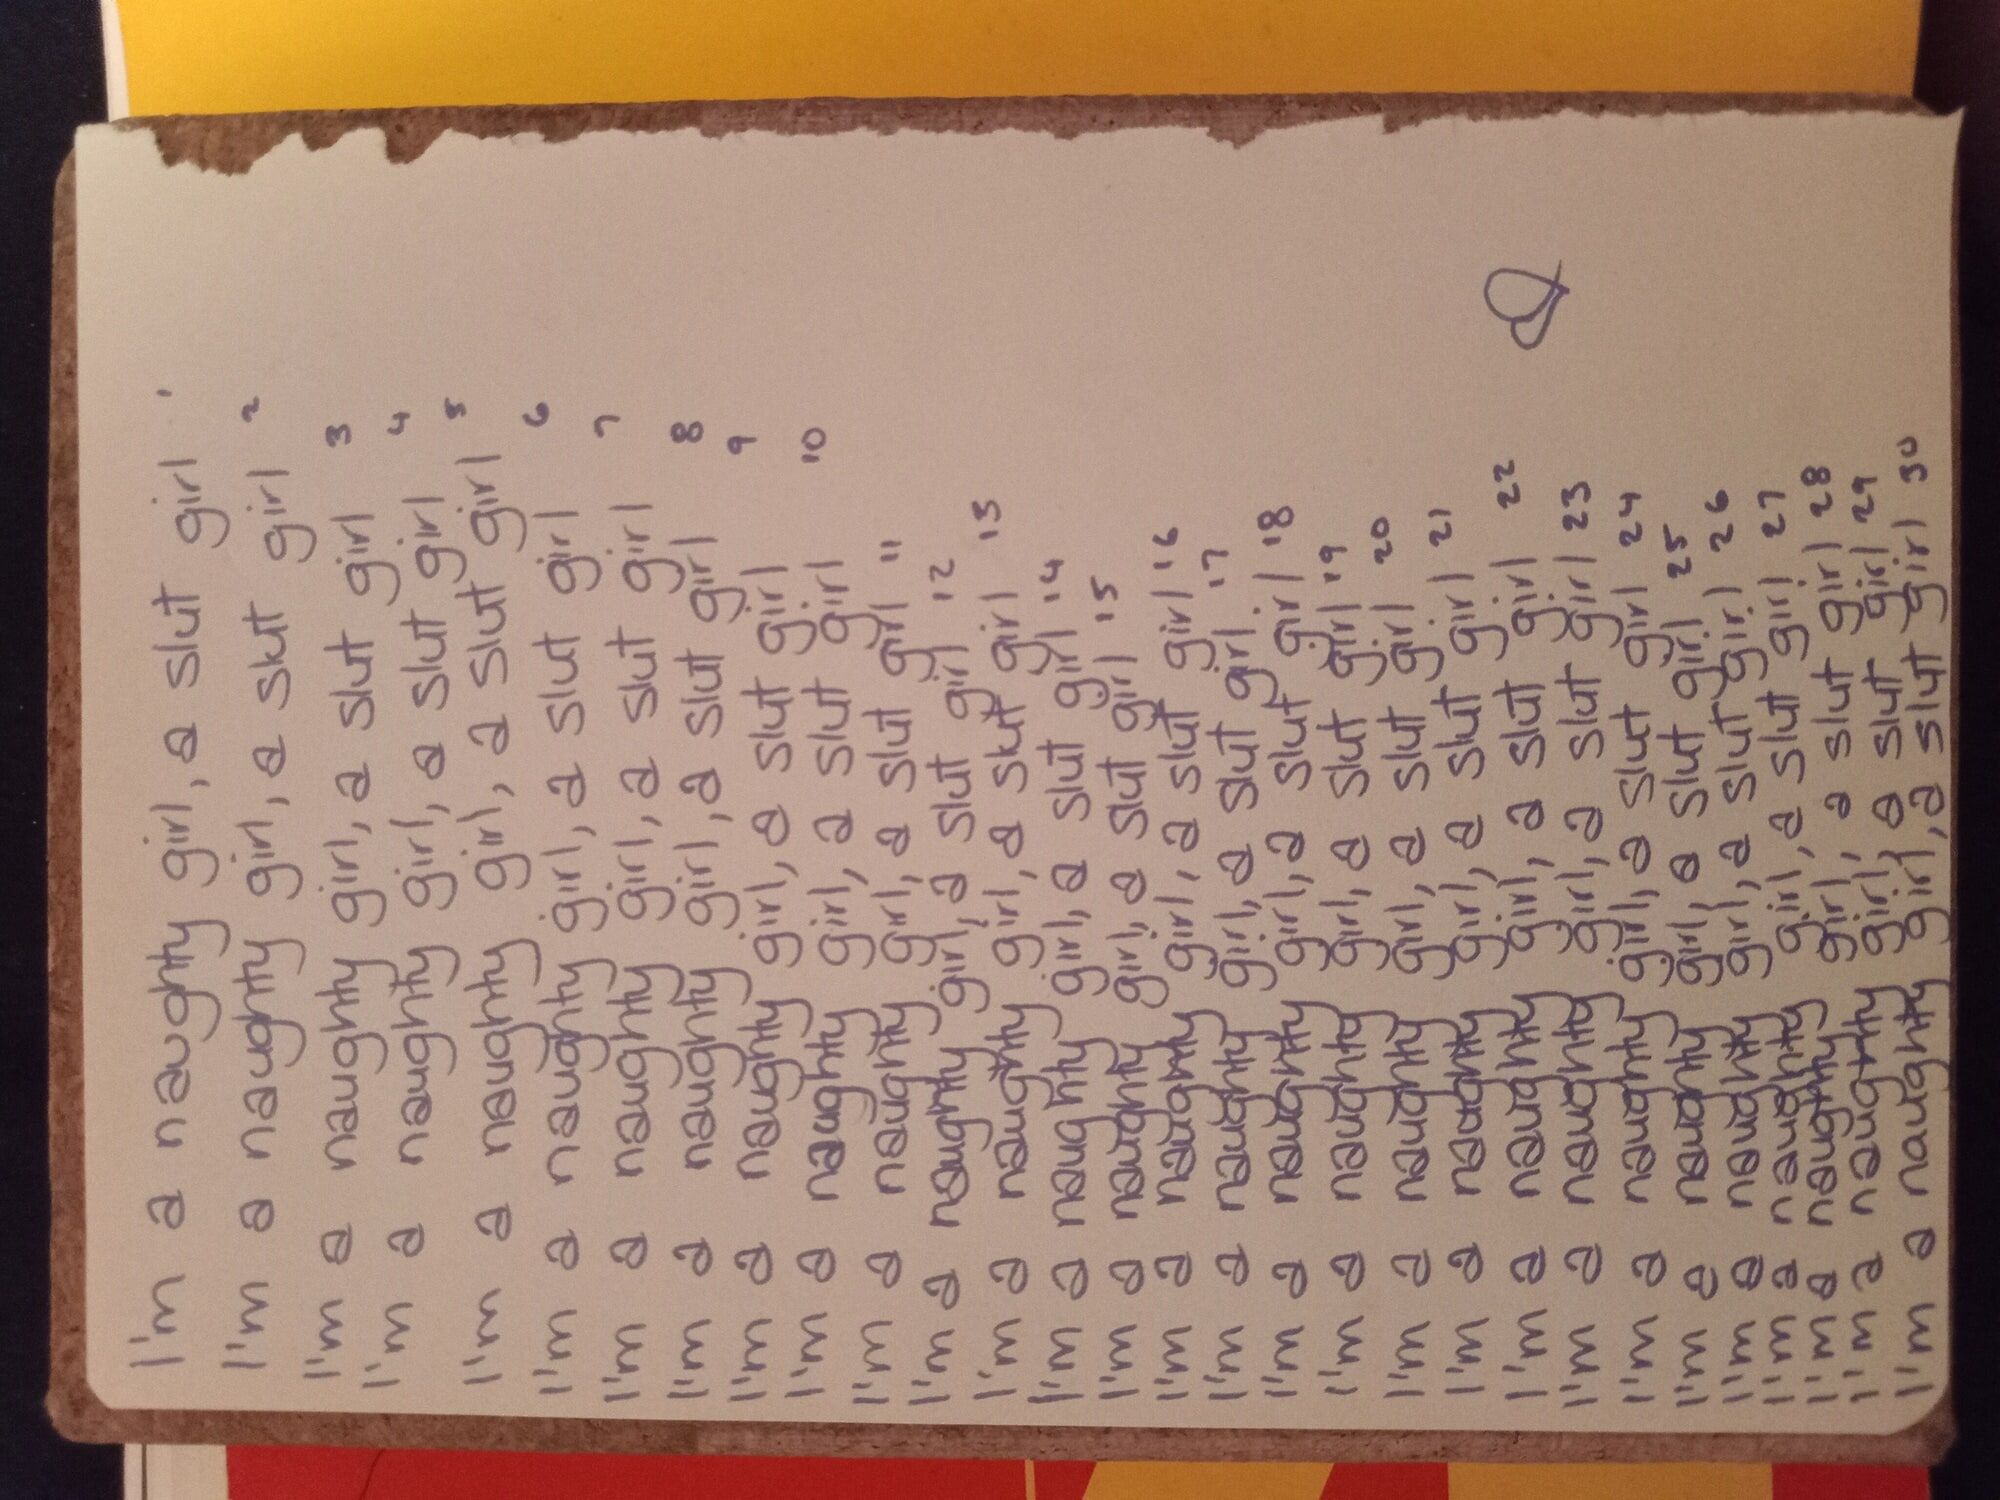 I'm a naughty girl, a slut girl 1
I'm a naughty girl, a slut girl 2
I'm a naughty girl, a slut girl 3
I'm a naughty girl, a slut girl 4
I'm a naughty girl, a slut girl 5
I'm a naughty girl, a slut girl 6
I'm a naughty girl, a slut girl 7
I'm a naughty girl, a slut girl 8
I'm a naughty girl, a slut girl 9
I'm a naughty girl, a slut girl 10
I'm a naughty girl, a slut girl 11
I'm a naughty girl, a slut girl 12
I'm a naughty girl, a slut girl 13
I'm a naughty girl, a slut girl 14
I'm a naughty girl, a slut girl 15
I'm a naughty girl, a slut girl 16
I'm a naughty girl, a slut girl 17
I'm a naughty girl, a slut girl 18
I'm a naughty girl, a slut girl 19
I'm a naughty girl, a slut girl 20
I'm a naughty girl, a slut girl 21
I'm a naughty girl, a slut girl 22
I'm a naughty girl, a slut girl 23
I'm a naughty girl, a slut girl 24
I'm a naughty girl, a slut girl 25
I'm a naughty girl, a slut girl 26
I'm a naughty girl, a slut girl 27
I'm a naughty girl, a slut girl 28
I'm a naughty girl, a slut girl 29
I'm a naughty girl, a slut girl 30